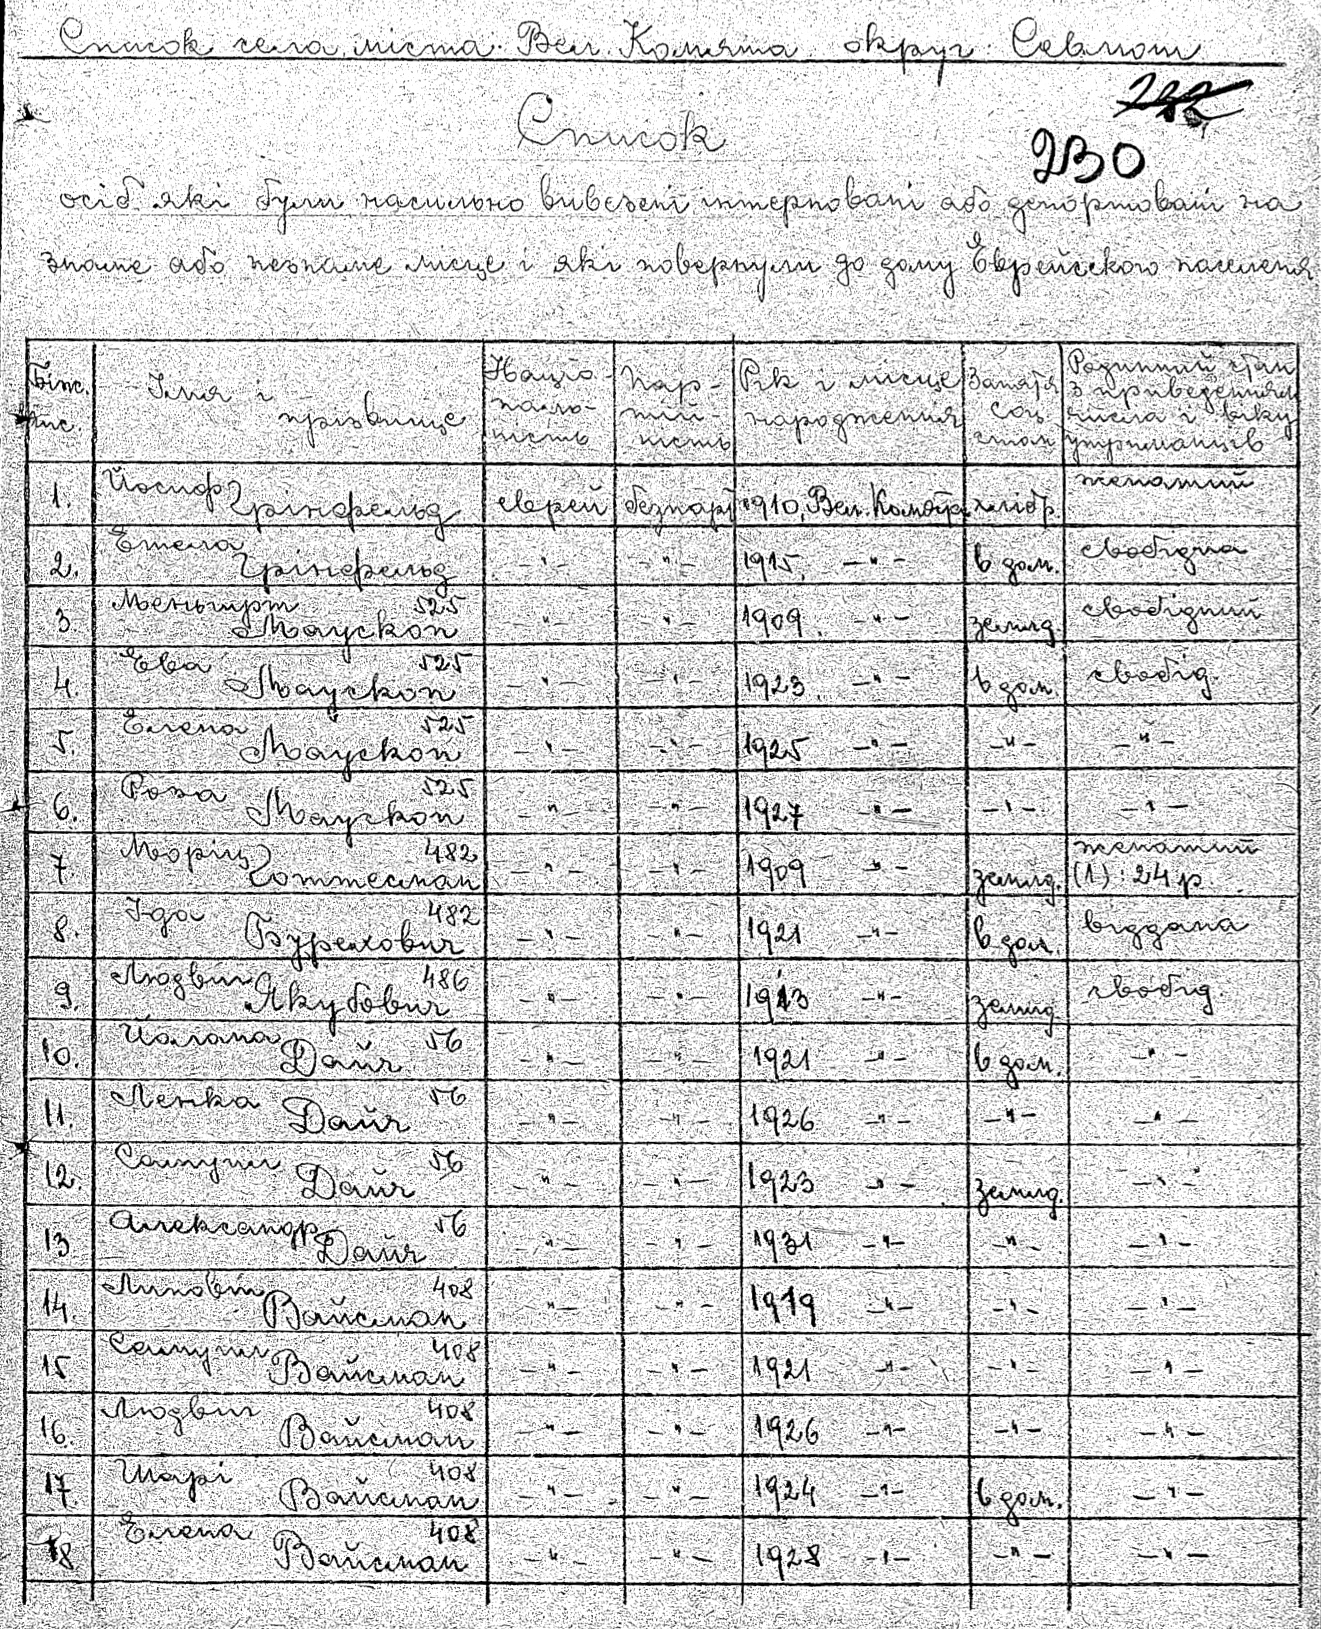 Список села, міста. Вел. Комята округ. Севлюш
232
Список
230
осіб які були насильно вивезені інтерновані або депортовані на
знаме або незнаме місце і які повернули до дому Єврейского населеня
Біж. чис. Імя і прізвище Націо-нально-ність Пар-тій-ність Рік і місце народження Занятя соц. стан Родинний стан з приведеням числа і віку утриманців
1. Йосиф Грінфельд еврей безпарт 1910, Вел. Комята хлібр. женатий
2. Етела Грінфельд -"- -"- 1915, -"- в дом. свобідна
3. Меньгерт 525 Маускоп -"- -"- 1909. -"- земнд. свобідний
4. Ева 525 Маускоп -"- -"- 1923. -"- в дом. свобід.
5. Елена 525 Маускоп -"- -"- 1925 -"- -"- -"-
6. Роза 525 Маускоп -"- -"- 1927 -"- -"- -"-
7. Моріц 482 Готтесман -"- -"- 1909 -"- земнд. женатий (1): 24 р.
8. Іда 482 -"- -"- 1921 -"- в дом. віддана
9. Людвіг 486 Якубович -"- -"- 1913 -"- земнд. свобід.
10. Йолана 56 Дайч -"- -"- 1921 -"- в дом. -"-
11. Ленка 56 Дайч -"- -"- 1926 -"- -"- -"-
12. Самуил 56 Дайч -"- -"- 1923 -"- земнд. -"-
13 Александр 56 Дайч -"- -"- 1931 -"- -"- -"-
14. 408 Вайсман -"- -"- 1919 -"- -"- -"-
15 Самуил 408 Вайсман -"- -"- 1921 -"- -"- -"-
16. Людвіг 408 Вайсман -"- -"- 1926 -"- -"- -"-
17. Шарі 408 Вайсман -"- -"- 1924 -"- в дом. -"-
18 Елена 408 Вайсман -"- -"- 1928 -"- -"- -"-